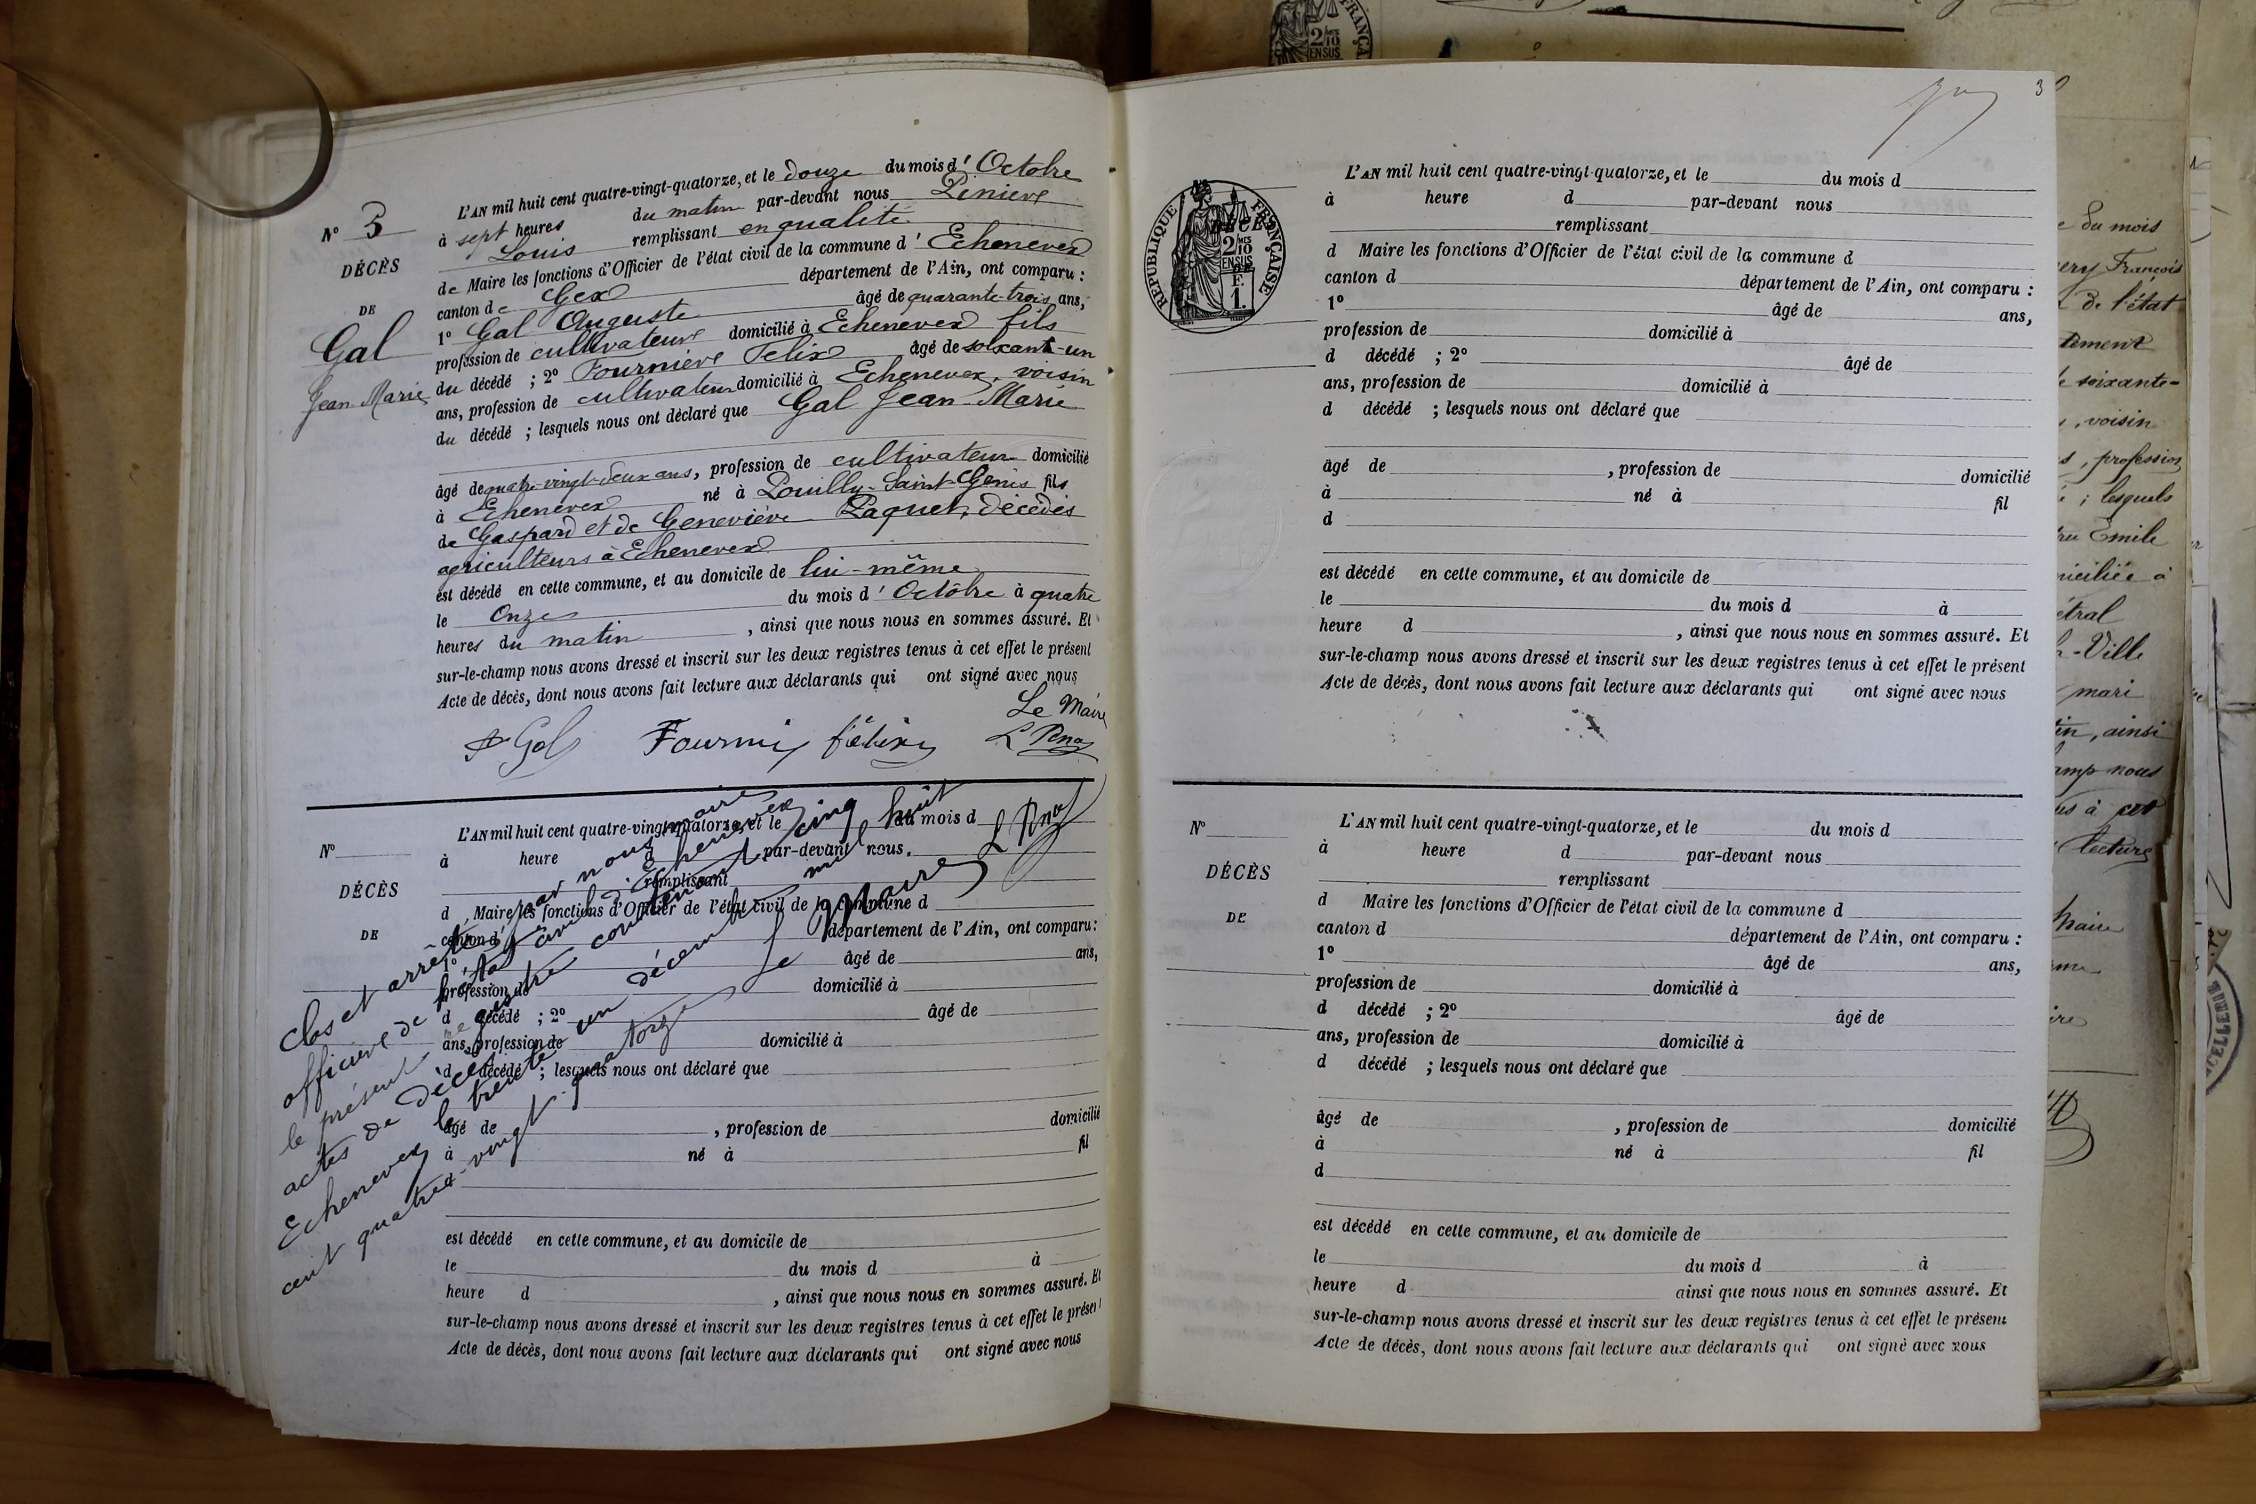 N° 5
DÉCÈS
DE
Gal
Jean-Marie
L'AN mil huit cent quatre-vingt-quatorze, et le douze du mois d'Octobre
à sept heures du matin par-devant nous Penieve
Louis remplissant en qualité
de Maire les fonctions d'Officier de l'état civil de la commune d'Echenevex
canton de Gex département de l'Ain, ont comparu :
1° Gal Auguste âgé de quarante-trois ans,
profession de cultivateur domicilié à Echenevex fils
du décédé ; 2° Fournière Félix âgé de soixante-un
ans, profession de cultivateur domicilié à Echenevex, voisin
du décédé ; lesquels nous ont déclaré que Gal Jean-Marie
âgé de quatre-vingt-deux ans, profession de cultivateur domicilié
à Echenevex né à Pouilly-Saint-Genis fils
de Gaspard et de Geneviève Paquet, décédés
agriculteurs à Echenevex
est décédé en cette commune, et au domicile de lui-même
le Onze du mois d'Octôbre à quatre
heures du matin, ainsi que nous nous en sommes assuré. Et
sur-le-champ nous avons dressé et inscrit sur les deux registres tenus à cet effet le présent
Acte de décès, dont nous avons fait lecture aux déclarants qui ont signé avec nous
Le Maire
A Gal Fournier félix L Pena
N°
DÉCÈS
DE
L'AN mil huit cent quatre-vingt-quatorze, et le du mois d
à heure d par-devant nous
remplissant
d Maire les fonctions d'Officier de l'état civil de la commune d
canton d département de l'Ain, ont comparu :
1° âgé de ans,
profession de domicilié à
d décédé ; 2° âgé de
ans, profession de domicilié à
d décédé ; lesquels nous ont déclaré que
âgé de , profession de domicilié
à né à fil
d
est décédé en cette commune, et au domicile de
le du mois d à
heure d , ainsi que nous nous en sommes assuré. Et
sur-le-champ nous avons dressé et inscrit sur les deux registres tenus à cet effet le présent
Acte de décès, dont nous avons fait lecture aux déclarants qui ont signé avec nous
Clos et arrêté par nous maire
officier de l'état civil d'Echenevex
le présent registre contenant cinq
actes de décès
Echenevex le trente un décembre mil huit
cent quatre-vingt-quatorze
Le Maire
3
RÉPUBLIQUE FRANÇAISE
2/10
EN SUS
F.
1.
L'AN mil huit cent quatre-vingt-quatorze, et le du mois d
à heure d par-devant nous
remplissant
d Maire les fonctions d'Officier de l'état civil de la commune d
canton d département de l'Ain, ont comparu :
1° âgé de ans,
profession de domicilié à
d décédé ; 2° âgé de
ans, profession de domicilié à
d décédé ; lesquels nous ont déclaré que
âgé de , profession de domicilié
à né à fil
d
est décédé en cette commune, et au domicile de
le du mois d à
heure d , ainsi que nous nous en sommes assuré. Et
sur-le-champ nous avons dressé et inscrit sur les deux registres tenus à cet effet le présent
Acte de décès, dont nous avons fait lecture aux déclarants qui ont signé avec nous
N°
DÉCÈS
DE
L'AN mil huit cent quatre-vingt-quatorze, et le du mois d
à heure d par-devant nous
remplissant
d Maire les fonctions d'Officier de l'état civil de la commune d
canton d département de l'Ain, ont comparu :
1° âgé de ans,
profession de domicilié à
d décédé ; 2° âgé de
ans, profession de domicilié à
d décédé ; lesquels nous ont déclaré que
âgé de , profession de domicilié
à né à fil
d
est décédé en cette commune, et au domicile de
le du mois d à
heure d ainsi que nous nous en sommes assuré. Et
sur-le-champ nous avons dressé et inscrit sur les deux registres tenus à cet effet le présent
Acte de décès, dont nous avons fait lecture aux déclarants qui ont signé avec nous
du mois
François
de l'état
soixante-
, voisin
, profession
; lesquels
Emile
-Ville
mari
, ainsi
nous
à cet
lecture